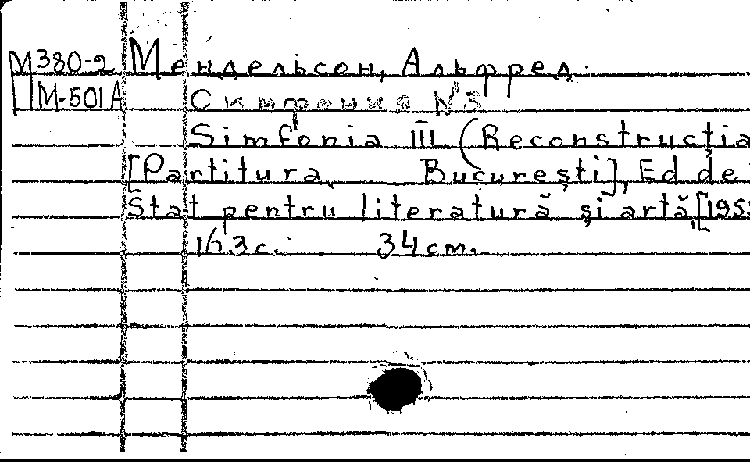 М380-2 Мендельсон, Альфред.
Ц М-501А Симфония №3
Simfonia III (Reconstrucția
[Partitura. București], Ed de
Stat pentru literatură și artă, [195
163c. 34cm.